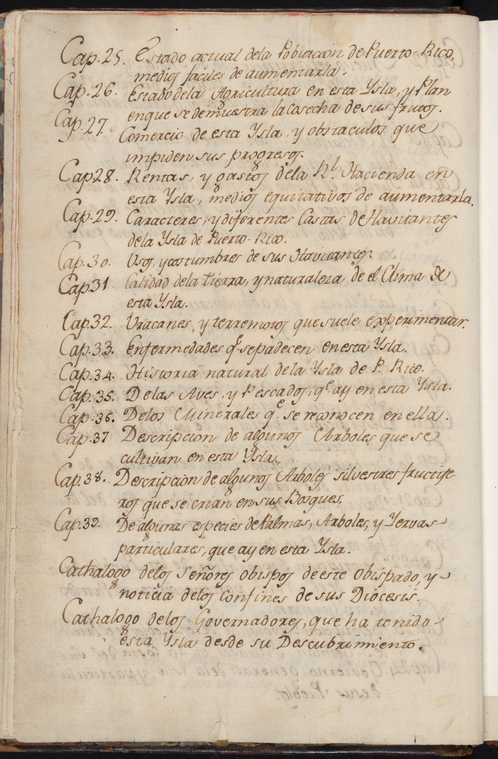 Cap. 25. Estado actual dela Poblacion de Puerto-Rico,
medios faciles de aumentarla.
Cap. 26. Estado dela Agricultura en esta Ysla, y Plan
en que se demuestra la cosecha de sus frutos.
Cap. 27. Comercio de esta Ysla, y obstaculos que
impiden sus progresos.
Cap 28. Rentas, y gastos dela Rl. Hacienda en
esta Ysla, medios equitativos de aumentarla.
Cap. 29. Caracteres, y diferentes Castas de Havitantes
de la Ysla de Puerto-Rico.
Cap. 30. Usos y costumbres de sus Havitantes.
Cap 31. Calidad dela tierra, y naturaleza de el Clima de
esta Ysla.
Cap. 32. Uracanes, y terremotos que suele experimentar.
Cap. 33. Enfermedades qe. se padecen en esta Ysla.
Cap. 34. Historia natural dela Ysla de P. Rico.
Cap. 35. De las Aves, y Pescados, qe. ay en esta Ysla.
Cap. 36. Delos Minerales qe. se reconocen en ellas.
Cap. 37 Descripcion de algunos Arboles que se
cultivan en esta Ysla.
Cap. 38. Descripcion de algunos Arboles silvestres fructife
ros que se crian en sus Bosques.
Cap. 39. De algunas especies de Palmas, Arboles, y Yervas
particulares, que ay en esta Ysla.
Cathalogo delos Señores obispos de este Obispado, y
noticia delos Confines de sus Diocesis.
Cathalogo delos Governadores, que ha tenido
esta Ysla desde su Descubrimiento.